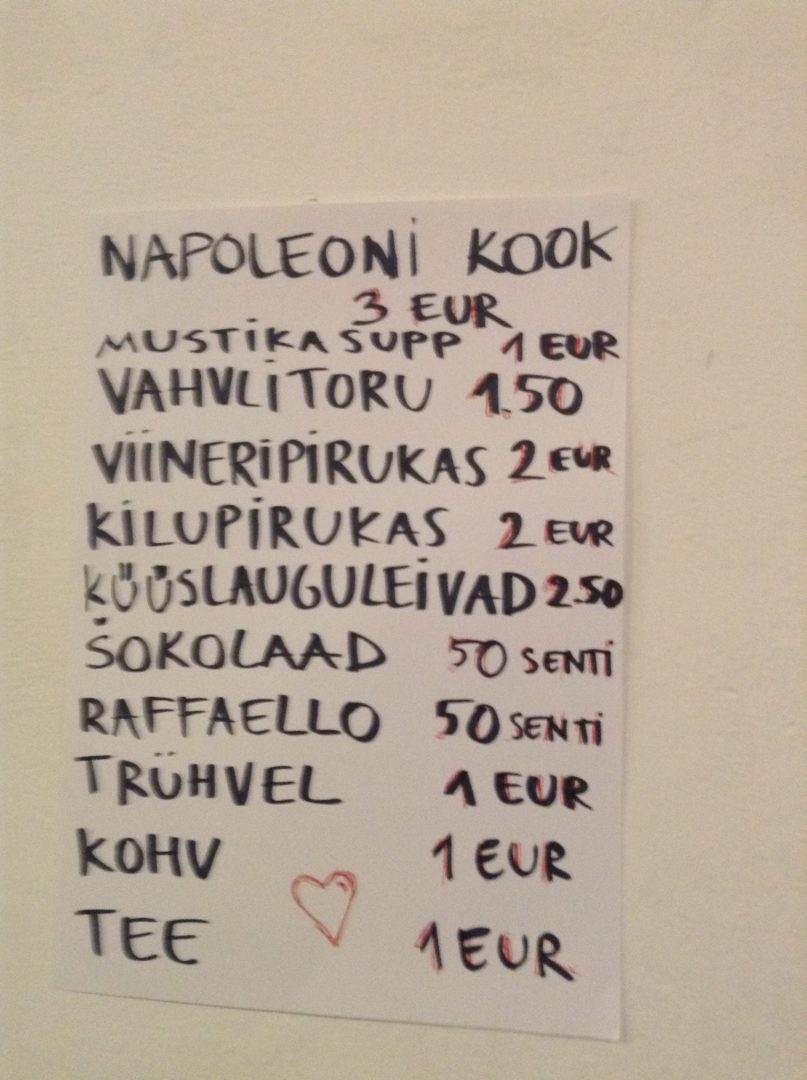 NAPOLEONI KOOK
3 EUR
MUSTIKASUPP 1 EUR
VAHVLITORU 1.50
VIINERIPIRUKAS 2 EUR
KILUPIRUKAS 2 EUR
KÜÜSLAUGULEIVAD 2.50
ŠOKOLAAD 50 SENTI
RAFFAELLO 50 SENTI
TRÜHVEL 1 EUR
KOHV 1 EUR
TEE 1 EUR